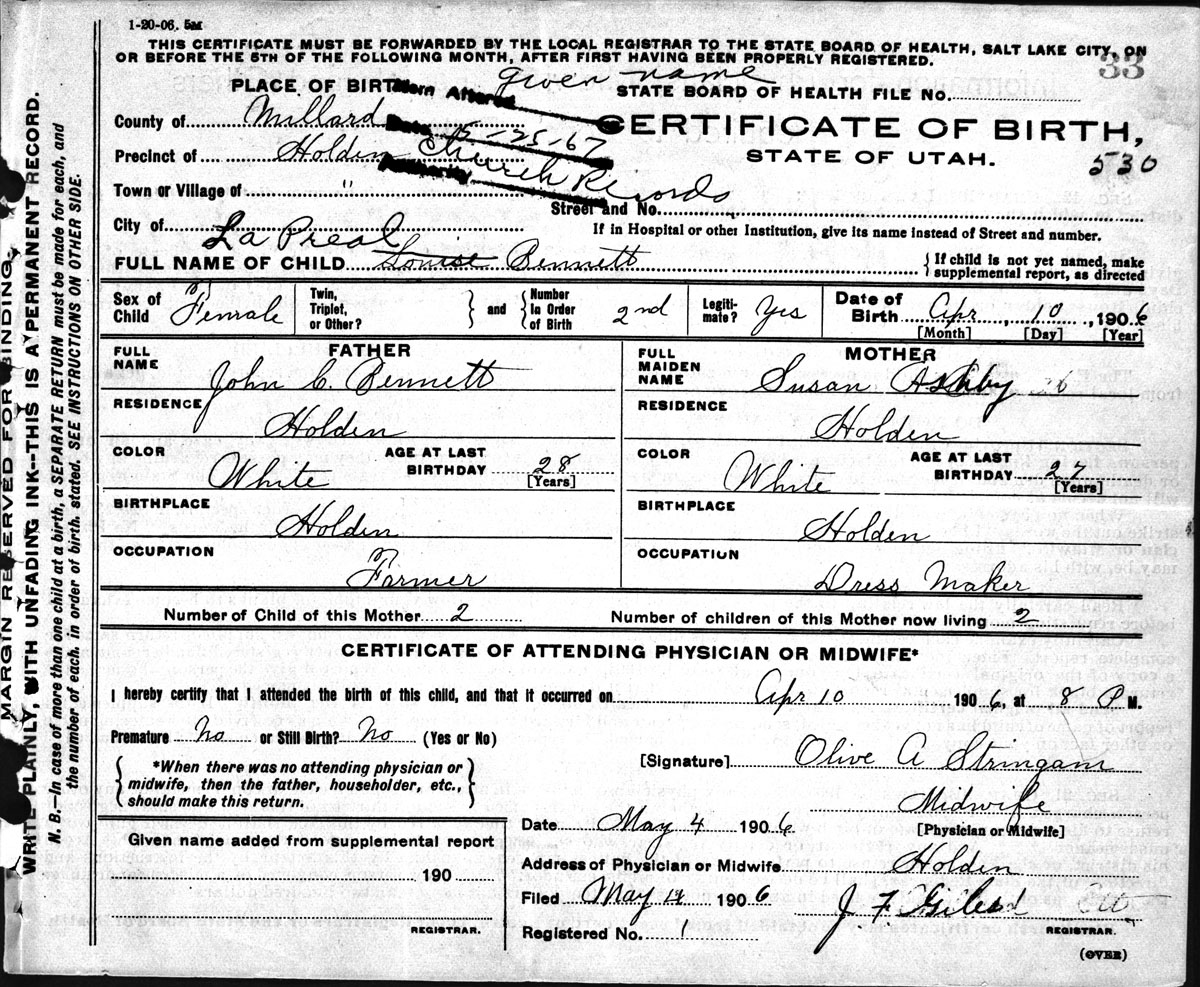 1-20-06. 5M
THIS CERTIFICATE MUST BE FORWARDED BY THE LOCAL REGISTRAR TO THE STATE BOARD OF HEALTH, SALT LAKE CITY, ON
OR BEFORE THE 5TH OF THE FOLLOWING MONTH, AFTER FIRST HAVING BEEN PROPERLY REGISTERED.
33
given name
PLACE OF BIRTH
Item Altered
STATE BOARD OF HEALTH FILE No.
County of Millard
Date 5-25-67
CERTIFICATE OF BIRTH,
Precinct of Holden
Church Records
STATE OF UTAH.
530
Authority
Town or Village of "
Street and No.
City of
If in Hospital or other Institution, give its name instead of Street and number.
La Preal
FULL NAME OF CHILD Louise Bennett
{If child is not yet named, make
supplemental report, as directed
Sex of Child Female
Twin, Triplet, or Other? } and { Number In Order of Birth 2nd
Legitimate? Yes
Date of Birth Apr 10, 1906
[Month] [Day] [Year]
FATHER
FULL NAME John C. Bennett
RESIDENCE
Holden
COLOR White
AGE AT LAST BIRTHDAY 28
[Years]
BIRTHPLACE
Holden
OCCUPATION
Farmer
MOTHER
FULL MAIDEN NAME Susan Ashby 26
RESIDENCE
Holden
COLOR White
AGE AT LAST BIRTHDAY 27
[Years]
BIRTHPLACE
Holden
OCCUPATION
Dress Maker
Number of Child of this Mother 2
Number of children of this Mother now living 2
CERTIFICATE OF ATTENDING PHYSICIAN OR MIDWIFE*
I hereby certify that I attended the birth of this child, and that it occurred on Apr 10 1906, at 8 P M.
Premature No or Still Birth? No (Yes or No)
{*When there was no attending physician or
midwife, then the father, householder, etc.,
should make this return.}
[Signature] Olive A Stringam
Midwife
[Physician or Midwife]
Date May 4 1906
Address of Physician or Midwife Holden
Filed May 14 1906
J. F. Giles
REGISTRAR.
Registered No. 1
(OVER)
Given name added from supplemental report
190
REGISTRAR.
MARGIN RESERVED FOR BINDING.
WRITE PLAINLY, WITH UNFADING INK--THIS IS A PERMANENT RECORD.
N. B.—In case of more than one child at a birth, a SEPARATE RETURN must be made for each, and
the number of each, in order of birth, stated. SEE INSTRUCTIONS ON OTHER SIDE.